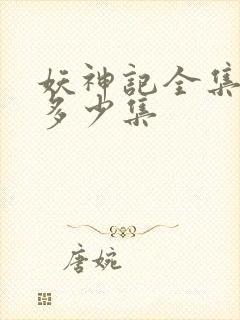 妖神記全集
多少集
唐婉